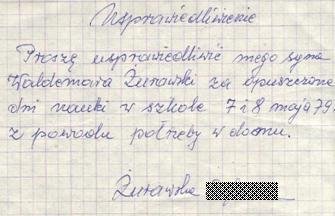 Usprawiedliwienie
Proszę usprawiedliwić mego syna
Waldemara Żurawski za opuszczone
dni nauki w szkole 7 i 8 maja 79.
z powodu potrzeby w domu.
Żurawska